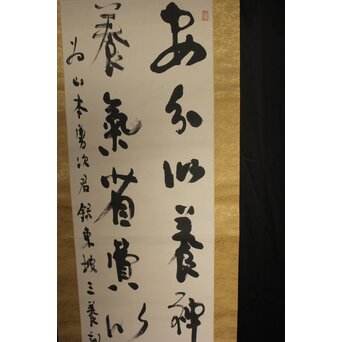 安分以養神
養氣省費以
為山本勇次君録東坡三養詞